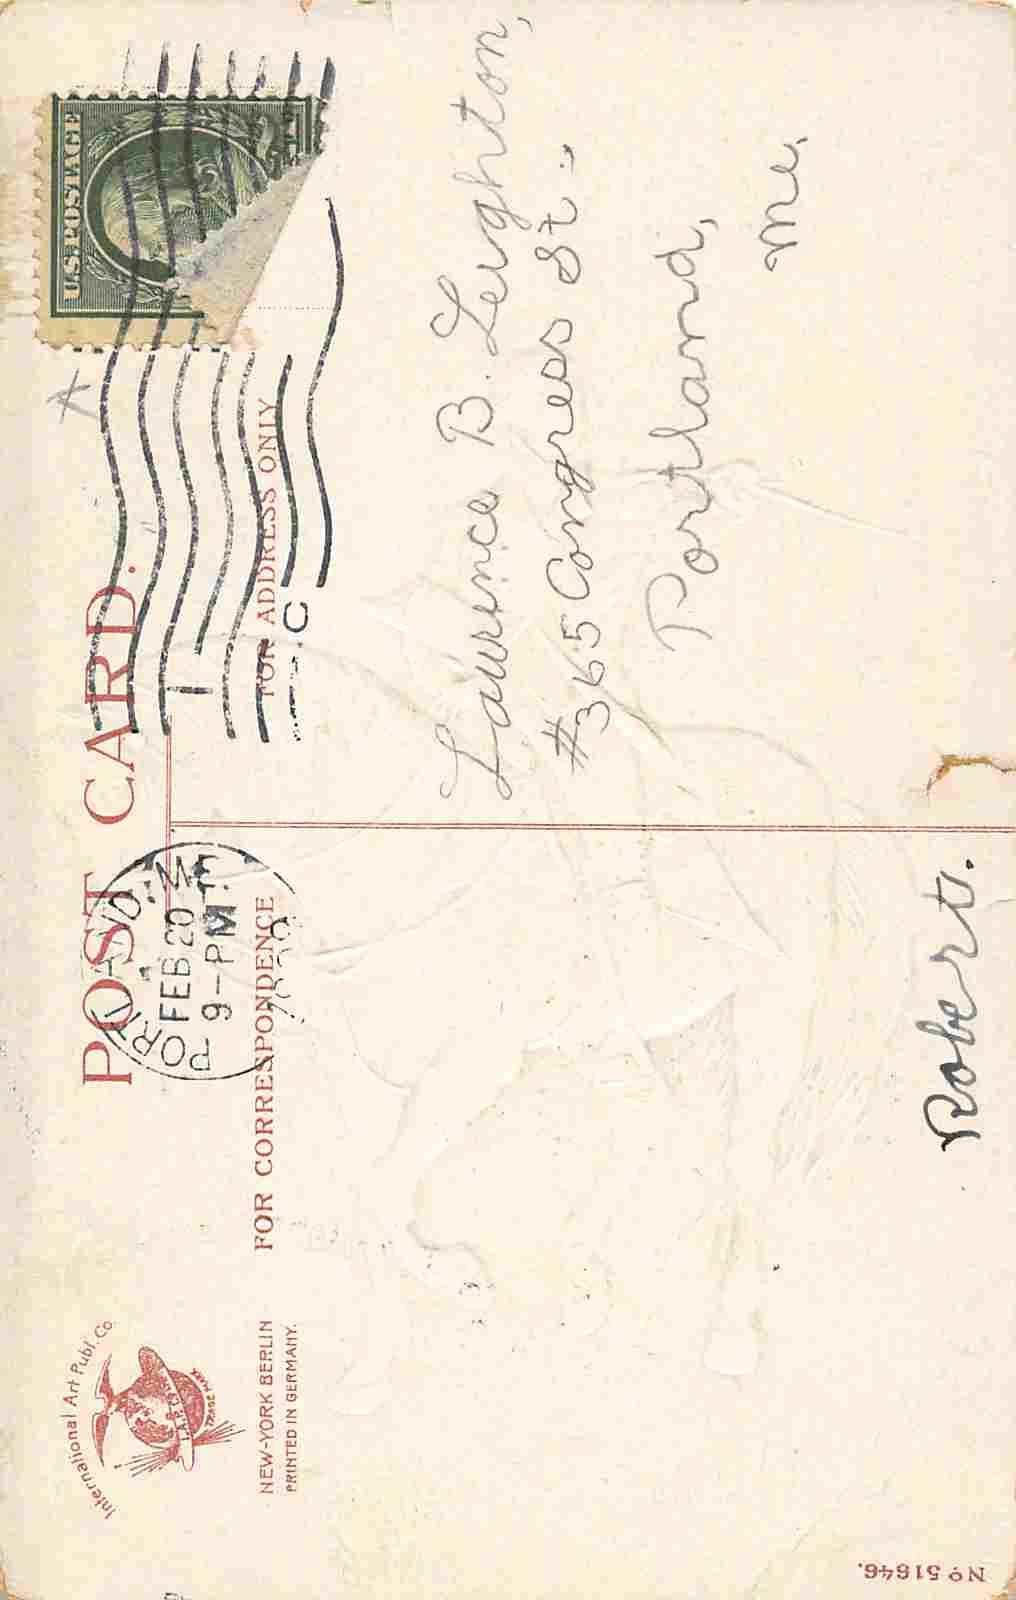 International Art Publ. Co.
I.A.P. Co.
TRADE MARK
NEW-YORK BERLIN
PRINTED IN GERMANY.
POST CARD.
FOR CORRESPONDENCE
FOR ADDRESS ONLY
PORTLAND, ME
FEB 20
9-PM
1
C
U.S. POSTAGE
Robert.
Lawrence B. Leighton,
#365 Congress St.
Portland,
Me.
No 51646.